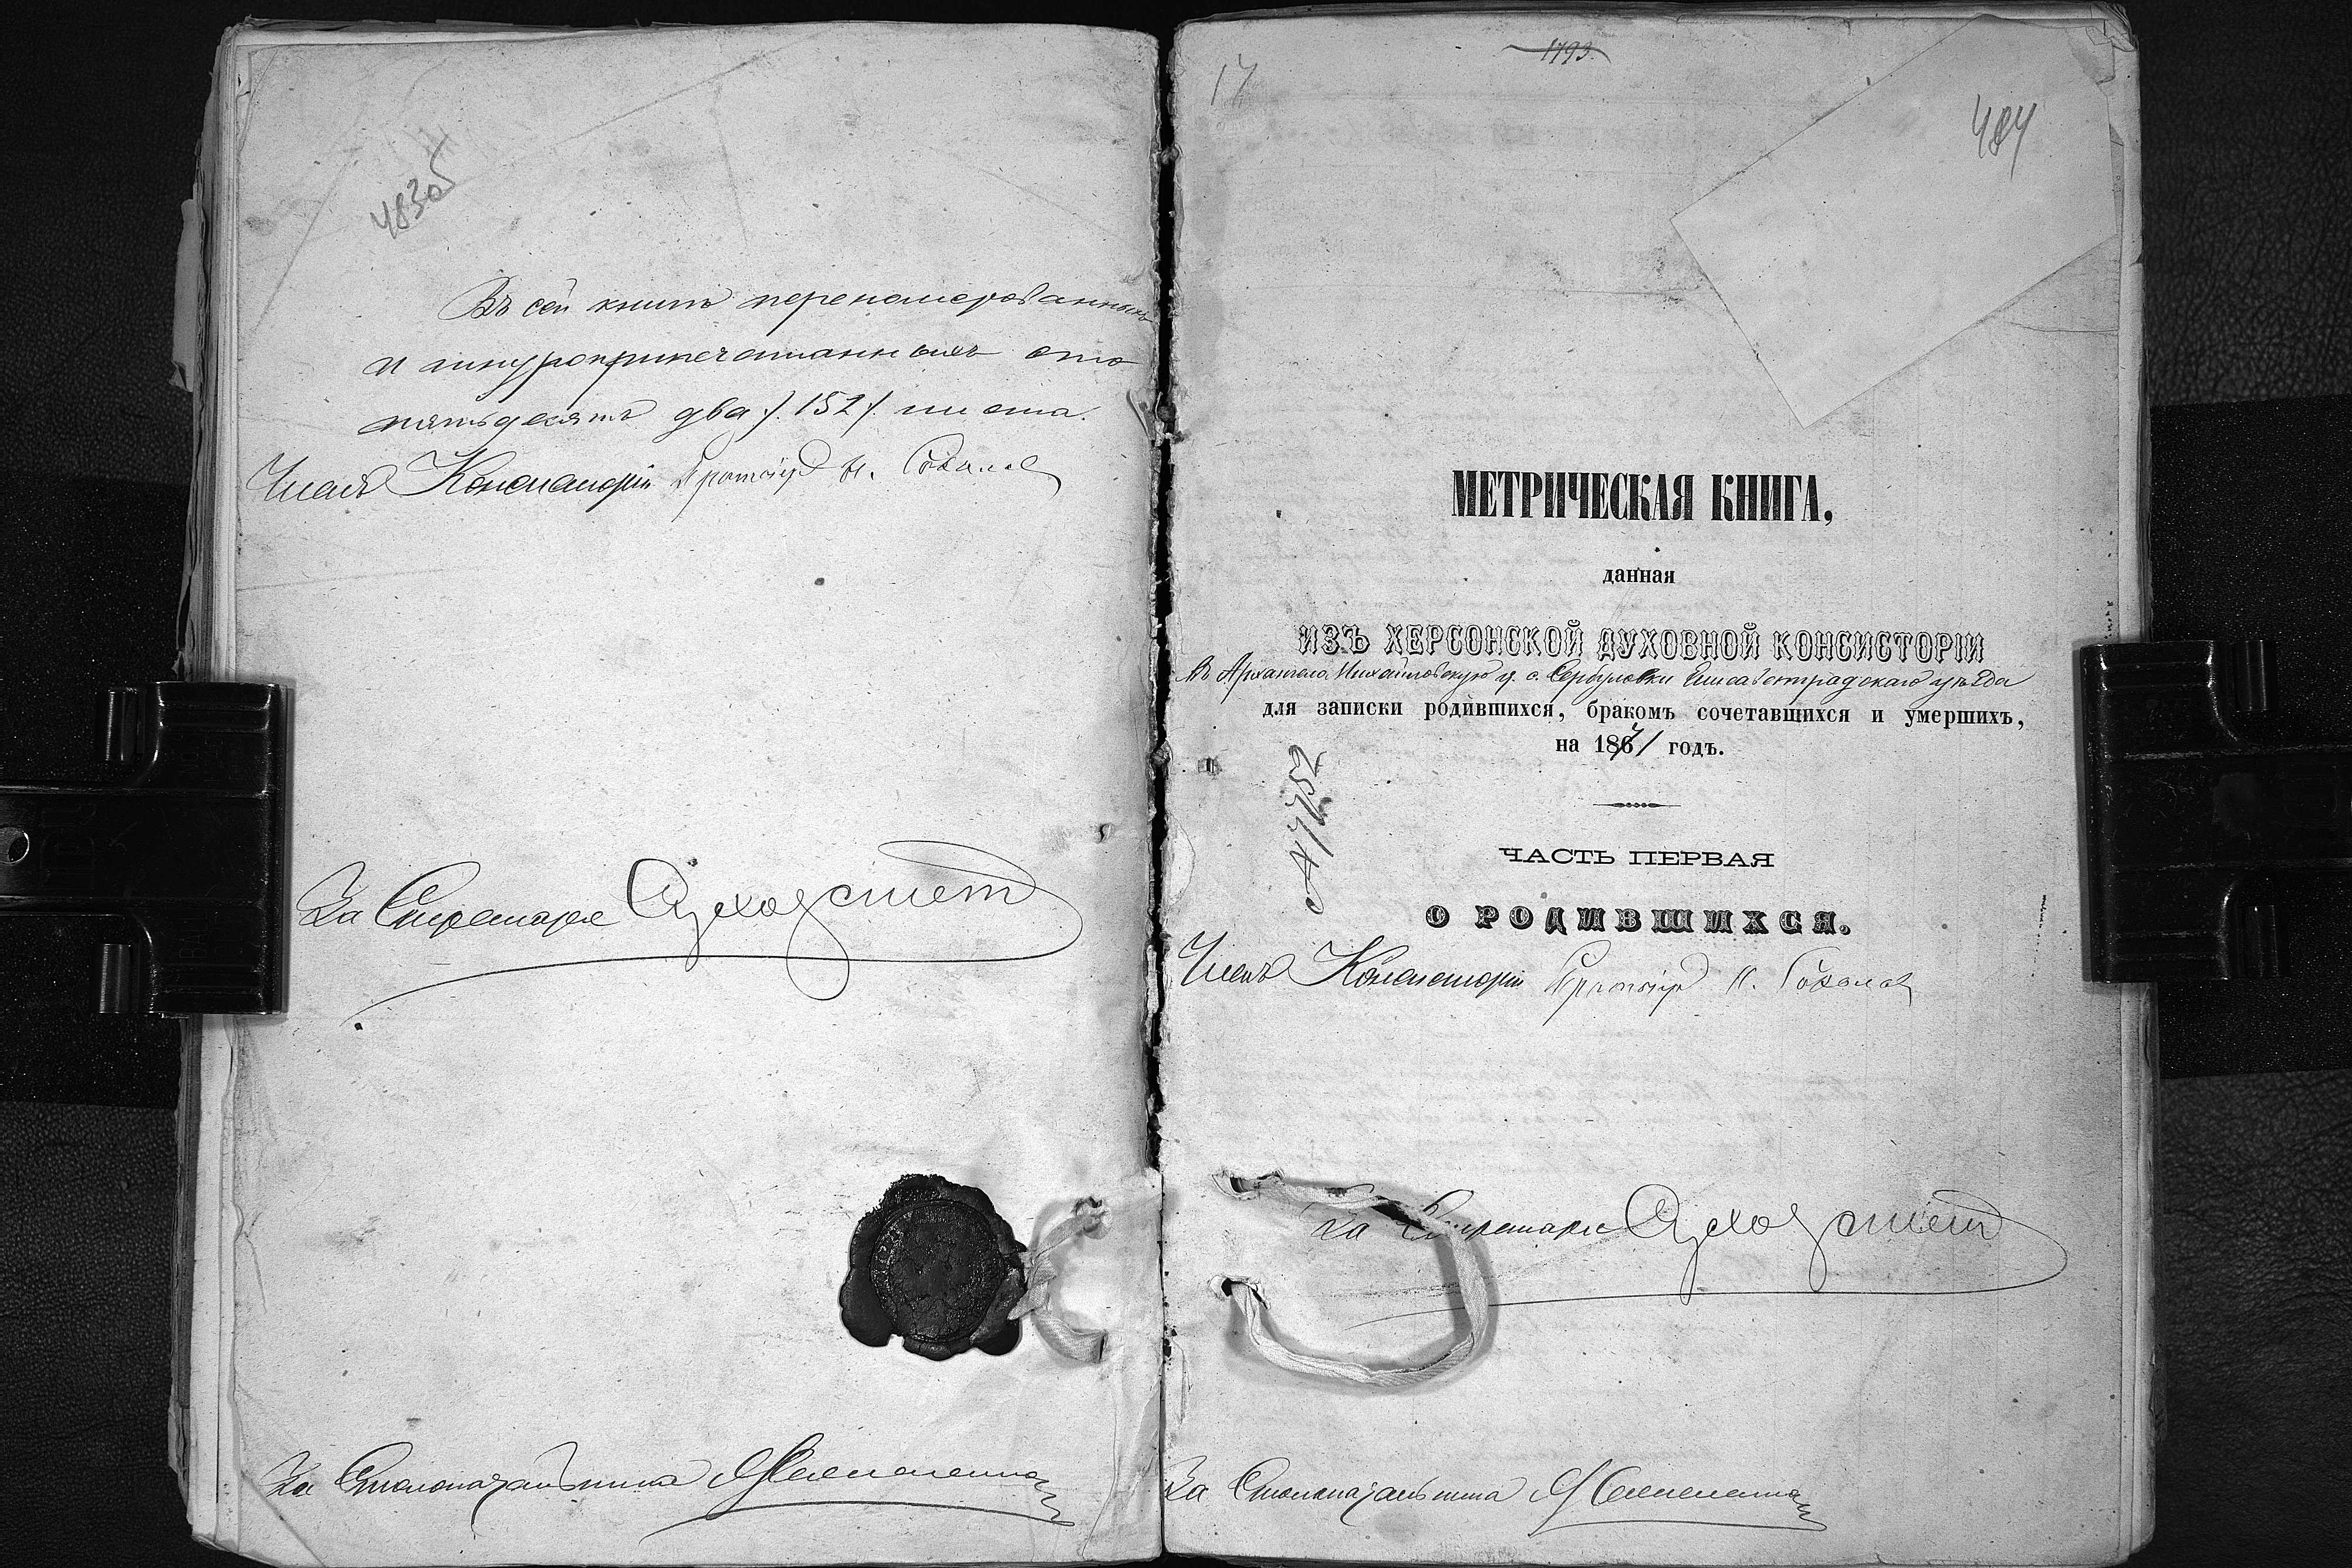 483об
Въ сей книгѣ перенумерованныхъ
и шнуроприпечатанныхъ сто
пятьдесятъ два /. 152 /. листа.
Членъ Консисторіи Протоіер Н. Соколов
За Секретаря
За Столоначальника
17
1793.
484
МЕТРИЧЕСКАЯ КНИГА,
данная
ИЗЪ ХЕРСОНСКОЙ ДУХОВНОЙ КОНСИСТОРІИ
въ Архангело Михайловскую ц. с. Сербуловки Елисаветградскаго уѣзда
для записки родившихся, бракомъ сочетавшихся и умершихъ,
на 1871 годъ.
ЧАСТЬ ПЕРВАЯ
О РОДИВШИХСЯ.
Членъ Консисторіи Протоіер Н. Соколов
За Секретаря
За Столоначальника